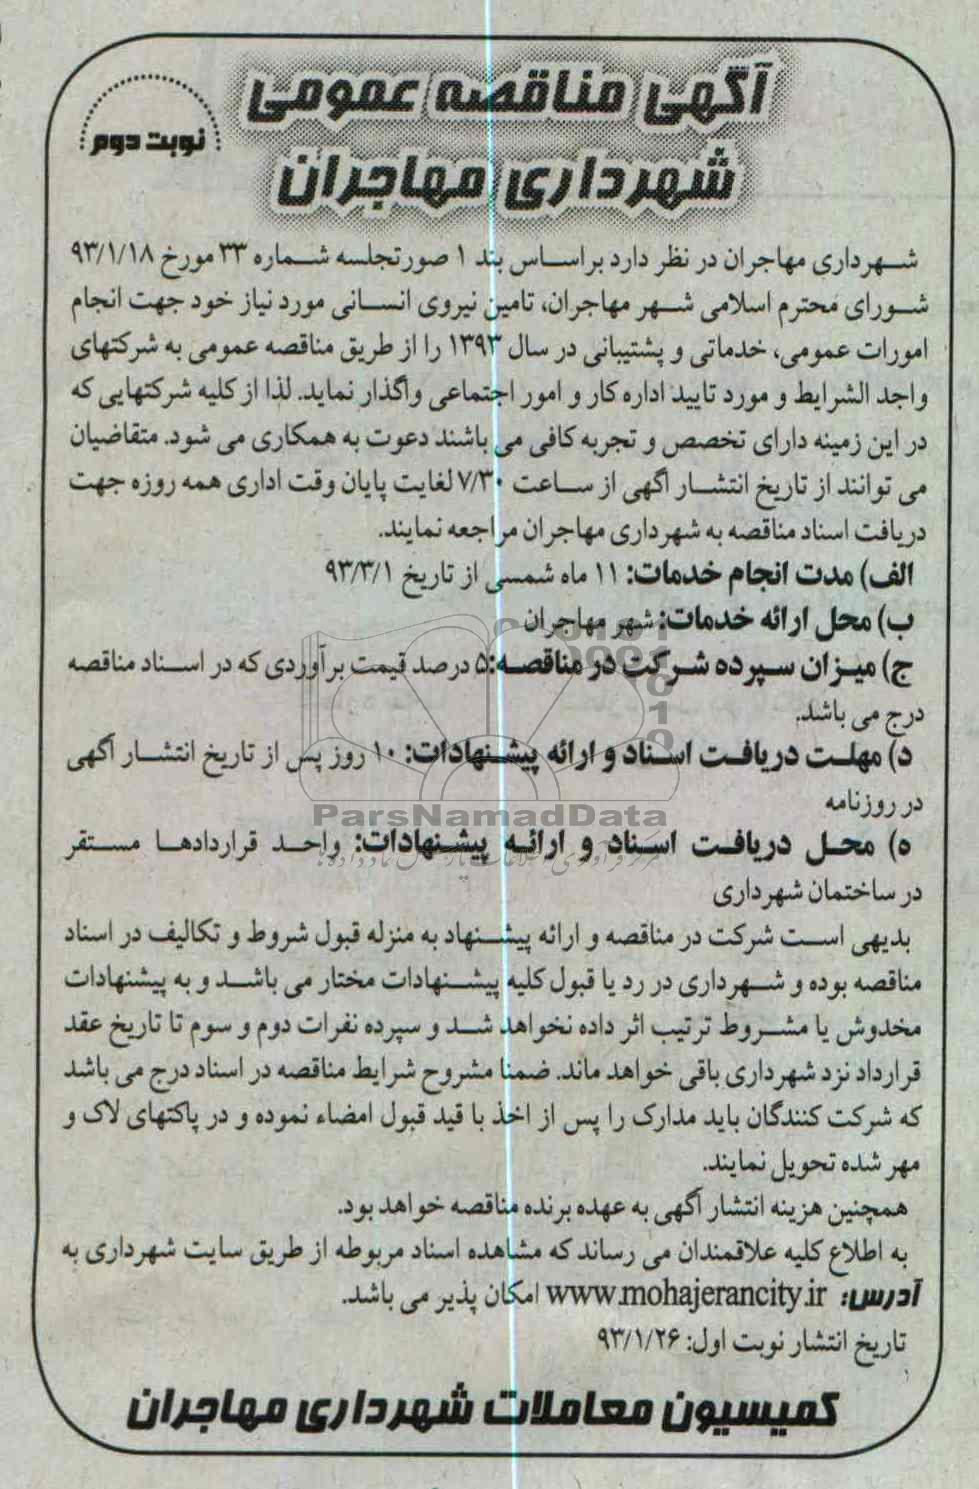 آگهی مناقصه عمومی
شهرداری مهاجران
نوبت دوم
شهرداری مهاجران در نظر دارد براساس بند ۱ صورتجلسه شماره ۳۳ مورخ ۹۳/۱/۱۸
شورای محترم اسلامی شهر مهاجران، تامین نیروی انسانی مورد نیاز خود جهت انجام
امورات عمومی، خدماتی و پشتیبانی در سال ۱۳۹۳ را از طریق مناقصه عمومی به شرکتهای
واجد الشرایط و مورد تایید اداره کار و امور اجتماعی واگذار نماید. لذا از کلیه شرکتهایی که
در این زمینه دارای تخصص و تجربه کافی می باشند دعوت به همکاری می شود. متقاضیان
می توانند از تاریخ انتشار آگهی از ساعت ۷/۳۰ لغایت پایان وقت اداری همه روزه جهت
دریافت اسناد مناقصه به شهرداری مهاجران مراجعه نمایند.
الف) مدت انجام خدمات: ۱۱ ماه شمسی از تاریخ ۹۳/۳/۱
ب) محل ارائه خدمات: شهر مهاجران
ج) میزان سپرده شرکت در مناقصه: ۵ درصد قیمت برآوردی که در اسناد مناقصه
درج می باشد.
د) مهلت دریافت اسناد و ارائه پیشنهادات: ۱۰ روز پس از تاریخ انتشار آگهی
در روزنامه
ParsNamadData
ه) محل دریافت اسناد و ارائه پیشنهادات: واحد قراردادها مستقر
در ساختمان شهرداری
بدیهی است شرکت در مناقصه و ارائه پیشنهاد به منزله قبول شروط و تکالیف در اسناد
مناقصه بوده و شهرداری در رد یا قبول کلیه پیشنهادات مختار می باشد و به پیشنهادات
مخدوش یا مشروط ترتیب اثر داده نخواهد شد و سپرده نفرات دوم و سوم تا تاریخ عقد
قرارداد نزد شهرداری باقی خواهد ماند. ضمنا مشروح شرایط مناقصه در اسناد درج می باشد
که شرکت کنندگان باید مدارک را پس از اخذ با قید قبول امضاء نموده و در پاکتهای لاک و
مهر شده تحویل نمایند.
همچنین هزینه انتشار آگهی به عهده برنده مناقصه خواهد بود.
به اطلاع کلیه علاقمندان می رساند که مشاهده اسناد مربوطه از طریق سایت شهرداری به
آدرس: www.mohajerancity.ir امکان پذیر می باشد.
تاریخ انتشار نوبت اول: ۹۳/۱/۲۶
کمیسیون معاملات شهرداری مهاجران